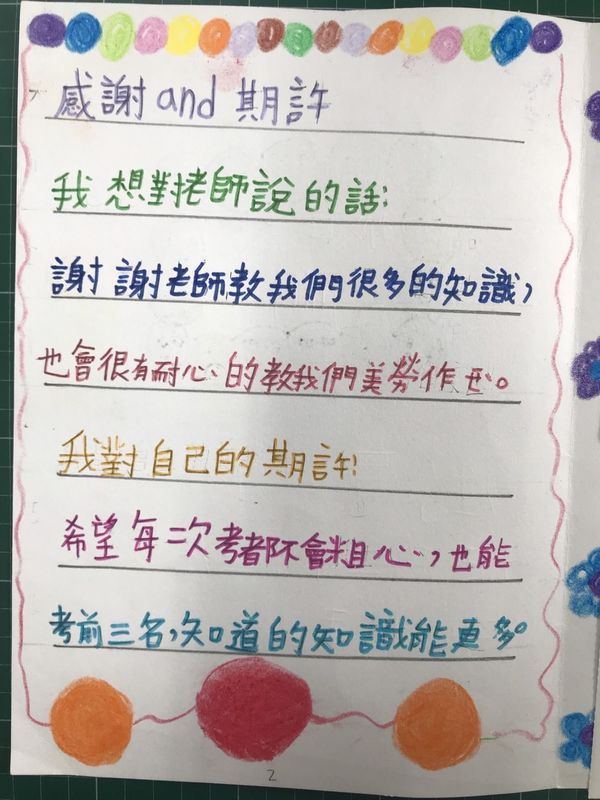 感謝and期許
我想對老師說的話:
謝謝老師教我們很多的知識,
也會很有耐心的教我們美勞作品。
我對自己的期許:
希望每一次考都不會粗心,也能
考前三名,知道的知識能更多。
2